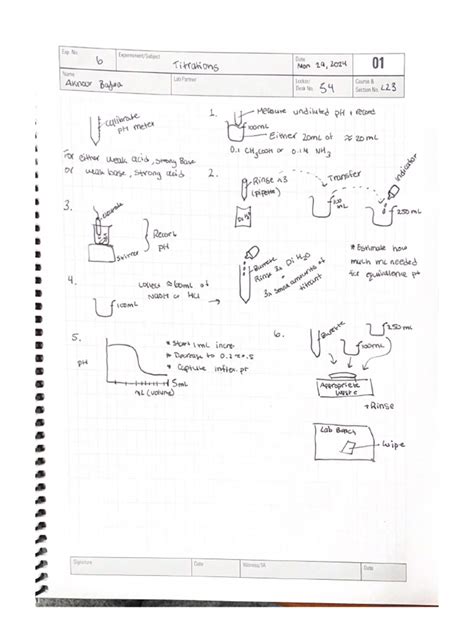 Exp. No.
6
Experiment/Subject
Titrations
Date
Nov 29, 2024
01
Name
Lab Partner
Locker/
Desk No.
54
Course &
Section No.
L23
calibrate
pH meter
For either weak acid, strong Base
or weak base, strong acid
1.
Measure undiluted pH + record
100mL
Either 20mL of ≈ 20 mL
0.1 CH₃COOH or 0.1M NH₃
2.
Rinse x3
(pipette)
Transfer
Indicator
100
mL
250 mL
3.
Stirrer
Record
pH
Burette
Rinse 3x DI H₂O
3x small amounts of
titrant
* Estimate how
much mL needed
for equivalence pt
4.
Collect ≈ 60mL of
NaOH or HCl
100mL
5.
pH
5mL
mL (volume)
* Start 1 mL incre.
* Decrease to 0.2 ↔ 0.5
* Capture inflec. pt
6.
Burette
100mL
250 mL
Appropriate
waste
+Rinse
Lab Bench
Wipe
Signature
Date
Witness/TA
Date